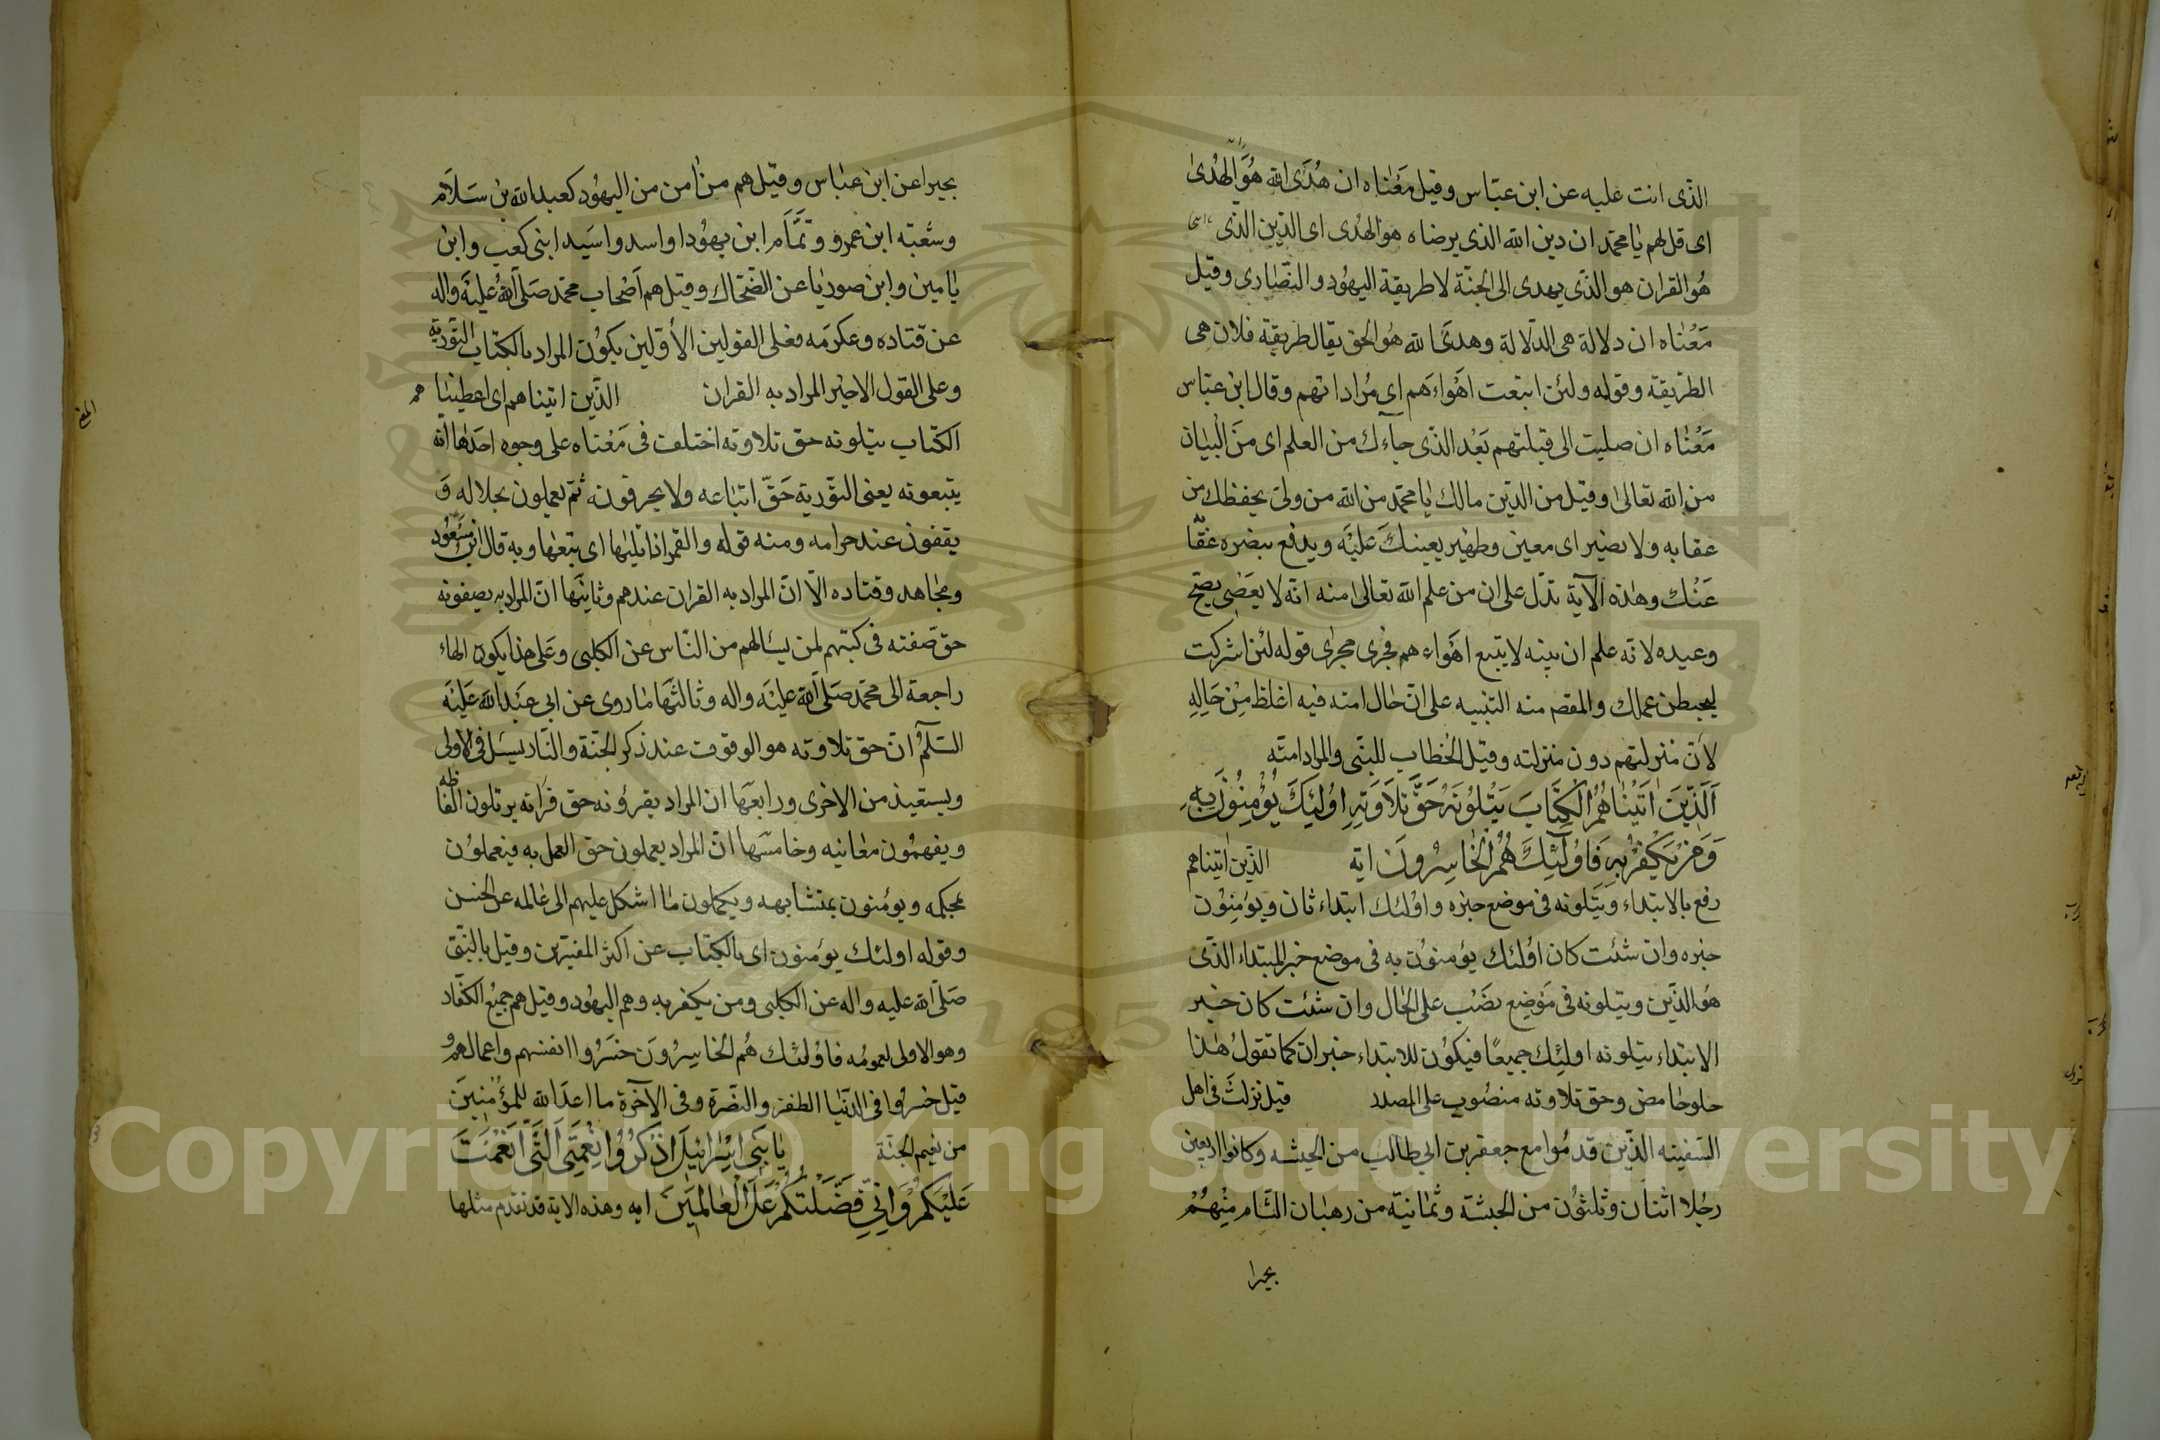 الذى انت عليه عن ابن عباس وقيل معناه ان هدى الله هو الهدى
اى قل لهم يا محمد ان دين الله الذى يرضاه هو الهدى اى الدين الذى
هو القران هو الذى يهدى الى الجنة لا طريقة اليهود والنصارى وقيل
معناه ان دلالة هى الدلالة وهدى الله هو الحق يقال طريقة فلان هى
الطريقه وقوله ولئن اتبعت اهواءهم اى مراداتهم وقال ابن عباس
معناه ان صليت الى قبلتهم بعد الذى جاءك من العلم اى من البيان
من الله تعالى وقيل من الدين مالك يا محمد من الله من ولى يحفظك من
عقابه ولا نصير اى معين وظهير يعينك عليه ويدفع بنصره عقا
عنك وهذه الآية تدل على ان من علم الله تعالى منه انه لا يعصى يصح
وعيده لانه علم ان نبيه لا يتبع اهواءهم فجرى مجرى قوله لئن اشركت
ليحبطن عملك والمقصد منه التنبيه على ان حال امته فيه اغلظ من حاله
لان منزلتهم دون منزلته وقيل الخطاب للنبى والمراد امته
الذين اتيناهم الكتاب يتلونه حق تلاوته اولئك يؤمنون به
ومن يكفر به فاولئك هم الخاسرون اية الذين اتيناهم
رفع بالابتداء ويتلونه فى موضع خبره واولئك ابتداء ثان ويؤمنون
خبره وان شئت كان اولئك يؤمنون به فى موضع خبر المبتداء الذى
هو الذين ويتلونه فى موضع نصب على الحال وان شئت كان خبر
الابتداء يتلونه اولئك جميعا فيكون للابتداء خبران كما تقول هذا
حلو حامض وحق تلاوته منصوب على المصدر قيل نزلت فى اهل
السفينه الذين قدموا مع جعفر بن ابى طالب من الحبشه وكانوا اربعين
رجلا اثنان وثلثون من الحبشة وثمانية من رهبان الشام منهم
بحيرا
بحيرا عن ابن عباس وقيل هم من امن من اليهود كعبد الله بن سلام
وشعبه ابن عمرو وتمام ابن يهودا واسد واسيد ابنى كعب وابن
يامين وابن صوريا عن الضحاك وقيل هم اصحاب محمد صلى الله عليه واله
عن قتاده وعكرمه فعلى القولين الاولين يكون المراد بالكتاب التورية
وعلى القول الاخير المراد به القران الذين اتيناهم اى اعطينا هم
الكتاب يتلونه حق تلاوته اختلف فى معناه على وجوه احدها انه
يتبعونه يعنى التورية حق اتباعه ولا يحرفونه ثم يعملون بحلاله و
يقفون عند حرامه ومنه قوله والقمر اذا تليها اى يتبعها وبه قال ابن مسعود
ومجاهد وقتاده الا ان المراد به القران عندهم وثانيها ان المراد به يصفونه
حق صفته فى كتبهم لمن يسالهم من الناس عن الكلبى وعلى هذا يكون الهاء
راجعة الى محمد صلى الله عليه واله وثالثها ما روى عن ابى عبد الله عليه
السلم ان حق تلاوته هو الوقوف عند ذكر الجنة والنار يسئل فى الاولى
ويستعيذ من الاخرى ورابعها ان المراد يقرؤنه حق قراته يرتلون الفاظه
ويفهمون معانيه وخامسها ان المراد يعملون حق العمل به فيعملون
بمحكمه ويؤمنون بمتشابهه ويكلون ما اشكل عليهم الى عالمه عن الحسن
وقوله اولئك يؤمنون اى بالكتاب عن اكثر المفسرين وقيل بالنبى
صلى الله عليه واله عن الكلبى ومن يكفر به وهم اليهود وقيل هم جميع الكفار
وهو الاولى لعمومه فاولئك هم الخاسرون خسروا انفسهم واعمالهم و
قيل خسروا فى الدنيا الظفر والنصرة وفى الآخرة ما اعد الله للمؤمنين
من نعيم الجنة يا بنى اسرائيل اذكروا نعمتى التى انعمت
عليكم وانى فضلتكم على العالمين ايه وهذه الاية قد تقدم مثلها
Copyright © King Saud University